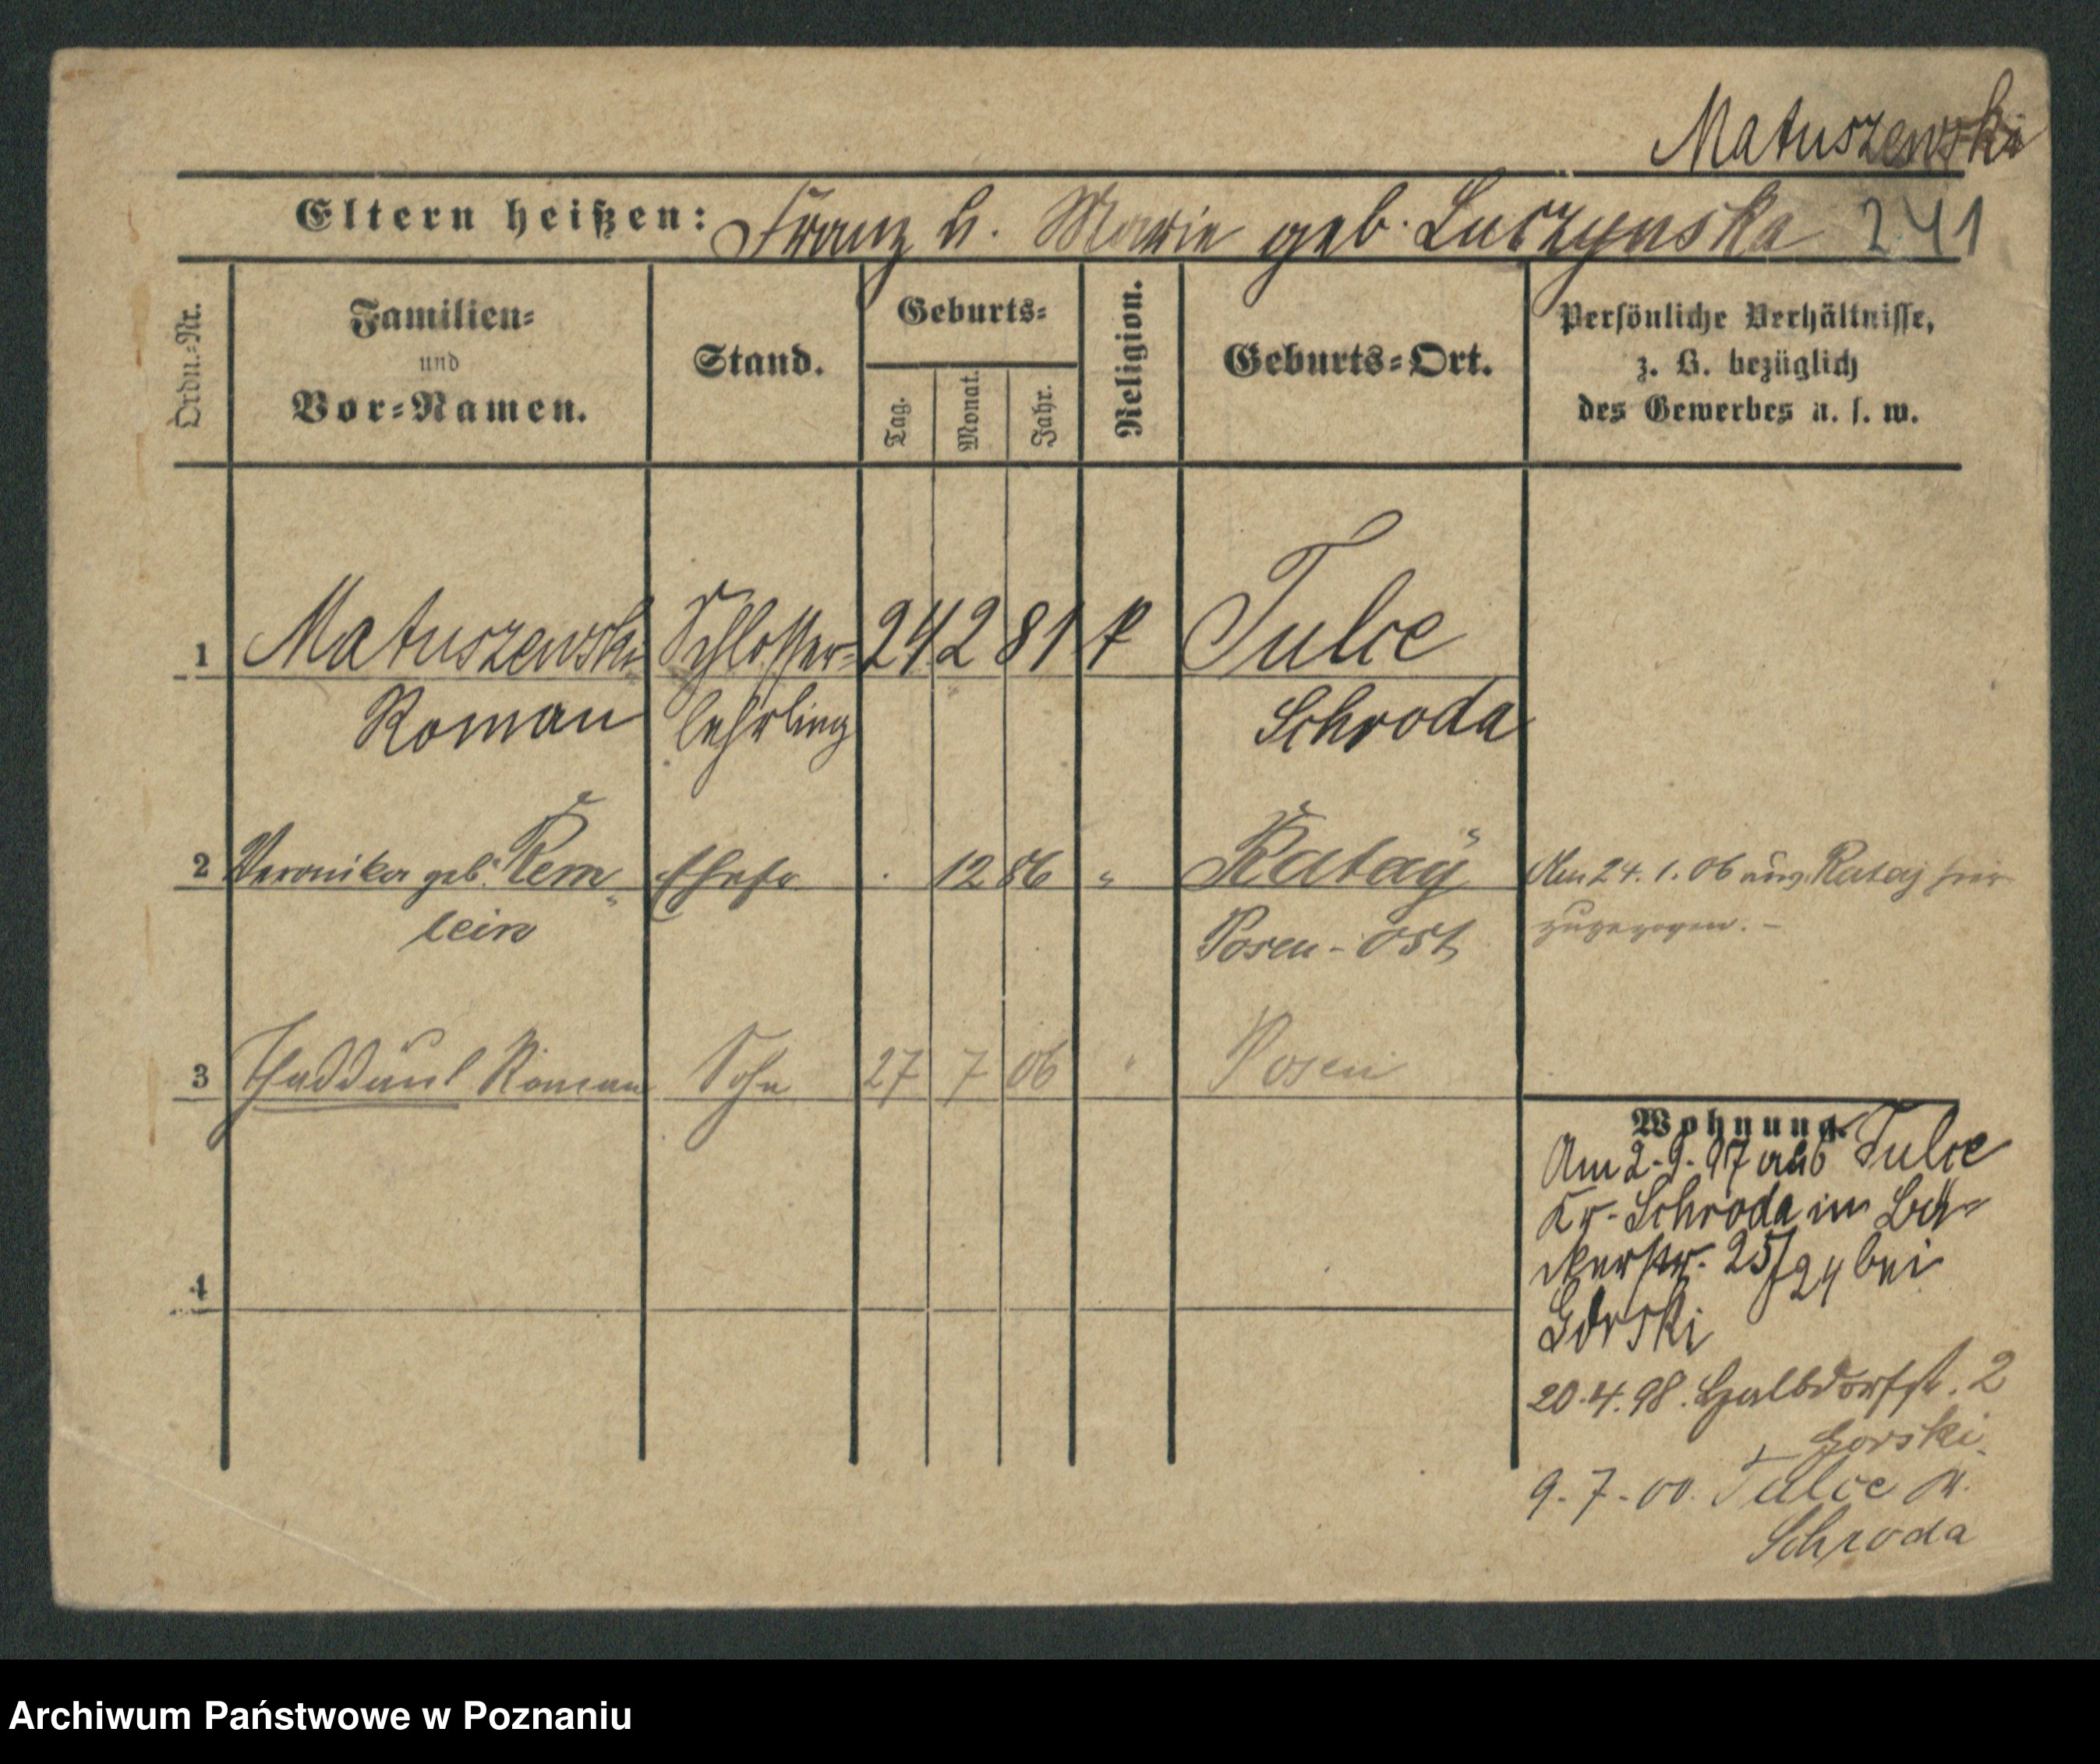 Matuszewski
Eltern heißen: Franz u. Marie geb. Luczynska 241
Ordn.-Nr.
Familien-
und
Vor-Namen.
Stand.
Geburts-
Tag.
Monat.
Jahr.
Religion.
Geburts-Ort.
Persönliche Verhältnisse,
z. B. bezüglich
des Gewerbes u. s. w.
1 Matuszewski Schlosser- 24 2 81 k Tulce
Roman lehrling Schroda
2 Veronika geb. Kem- Ehefr . 12 86 " Rataÿ Am 24.1.06 aus Rataj hier
lein Posen-Ost zugezogen. -
3 Thaddäus Roman Sohn 27 7 06 " Posen
Wohnung.
Am 2-9-97 aus Tulce
Kr. Schroda in Bä-
ckerstr. 25/24 bei
Gorski
20.4.98. Halbdorfst. 2
Gorski.
9-7-00. Tulce Kr.
Schroda
4
Archiwum Państwowe w Poznaniu